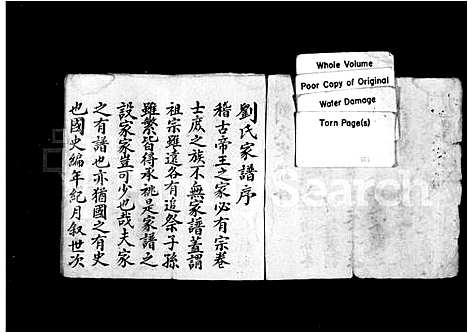 劉氏家譜序
稽古帝王之家必有宗卷
士庶之族不無家譜蓋謂
祖宗雖遠各有追祭子孫
雖繁皆得承祧是家譜之
設家家豈可少也哉夫家
之有譜也亦猶國之有史
也國史編年紀月叙世次
Whole Volume
Poor Copy of Original
Water Damage
Torn Page(s)
Search